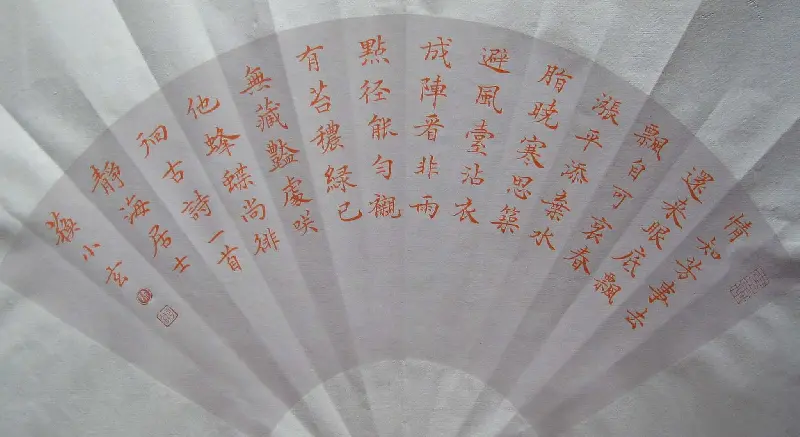 情知芳事去
還来眼底飄
飄自可哀春
漲平添棄水
脂曉寒思築
避風臺沾衣
成陣看非雨
點径能勻襯
有苔穠緑已
無藏豔處咲
他蜂蝶尚徘
徊古詩一首
靜海居士
小玄